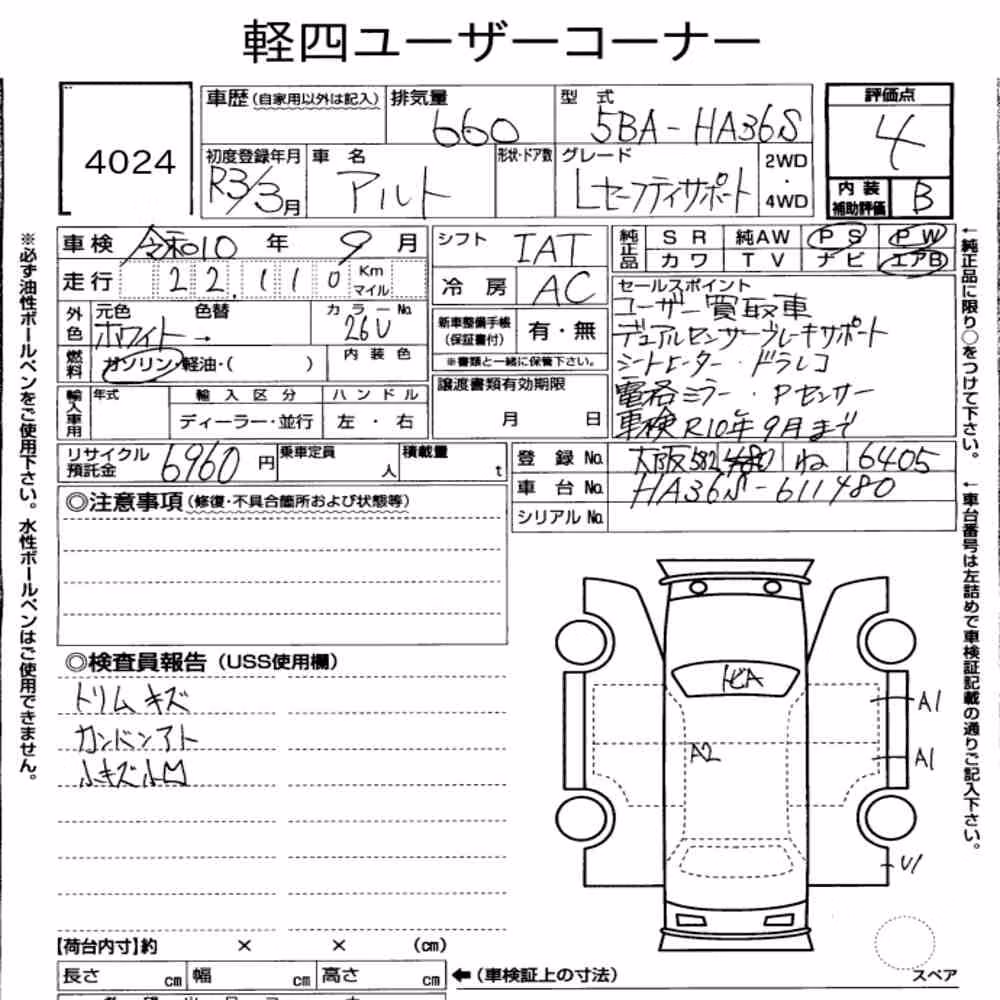 軽四ユーザーコーナー
4024
車歴(自家用以外は記入)
排気量
660
型 式
5BA-HA36S
評価点
4
初度登録年月
R3/3月
車 名
アルト
形状・ドア数
グレード
Lセーフティサポート
2WD
・
4WD
内装
補助評価
B
車検 令和10 年 9 月
走行 22,110 Km
マイル
シフト
IAT
冷房
AC
純正品
SR 純AW PS PW
カワ TV ナビ エアB
外色
元色 色替
ホワイト→
カラーNo.
26U
燃料
ガソリン・軽油・( )
内装色
新車整備手帳
(保証書付)
有・無
※書類と一緒に保管下さい。
セールスポイント
ユーザー買取車
デュアルセンサーブレーキサポート
シートヒーター・ドラレコ
電格ミラー・Pセンサー
車検R10年9月まで
輸入車用
年式
輸入区分
ハンドル
ディーラー・並行
左・右
譲渡書類有効期限
月 日
リサイクル
預託金
6960円
乗車定員
人
積載量
t
登録No. 大阪582 ね 6405
車台No. HA36S-611480
シリアルNo.
◎注意事項(修復・不具合箇所および状態等)
◎検査員報告(USS使用欄)
トリムキズ
カンバンアト
小キズ小凹
ヒA
A2
A1
A1
U1
【荷台内寸】約 × × (cm)
長さ cm 幅 cm 高さ cm
←(車検証上の寸法)
スペア
※必ず油性ボールペンをご使用下さい。水性ボールペンはご使用できません。
←純正品に限り○をつけて下さい。
←車台番号は左詰めで車検証記載の通りご記入下さい。